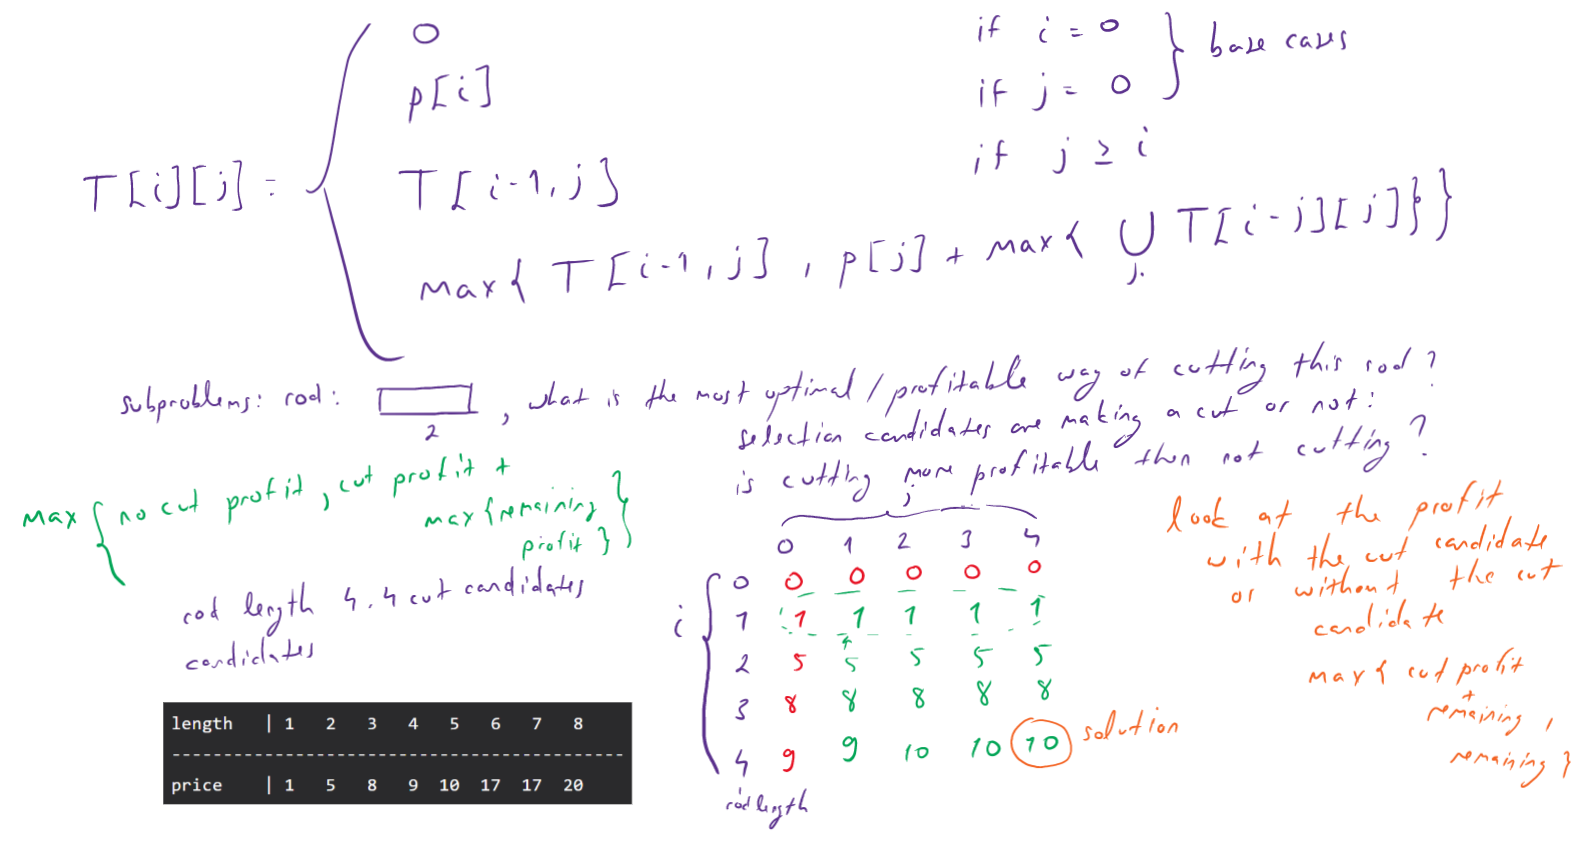 T[i][j] =
0 if i = 0
p[i] if j = 0
} base cases
T[i-1, j] if j ≥ i
max{ T[i-1, j] , p[j] + max{ ⋃ T[i-j][j]}}
j
subproblems: rod: , what is the most optimal / profitable way of cutting this rod?
2
selection candidates are making a cut or not:
is cutting more profitable then not cutting?
max { no cut profit, cut profit +
max {remaining
profit } }
rod length 4. 4 cut candidates
candidates
length | 1 2 3 4 5 6 7 8
---------------------------------------------
price | 1 5 8 9 10 17 17 20
j
0 1 2 3 4
i
0 0 0 0 0 0
1 1 1 1 1 1
2 5 5 5 5 5
3 8 8 8 8 8
4 9 9 10 10 10
solution
rod length
look at the profit
with the cut candidate
or without the cut
candidate
max { cut profit
+
remaining ,
remaining }